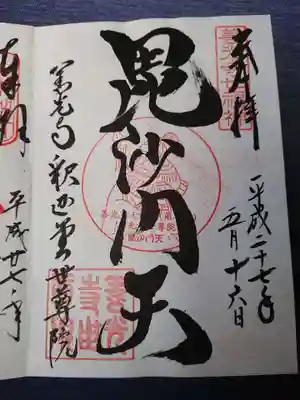 奉拝
平成二十七年
五月十六日
毘沙門天
善光寺釈迦堂世尊院
奉拝
平成廿七年